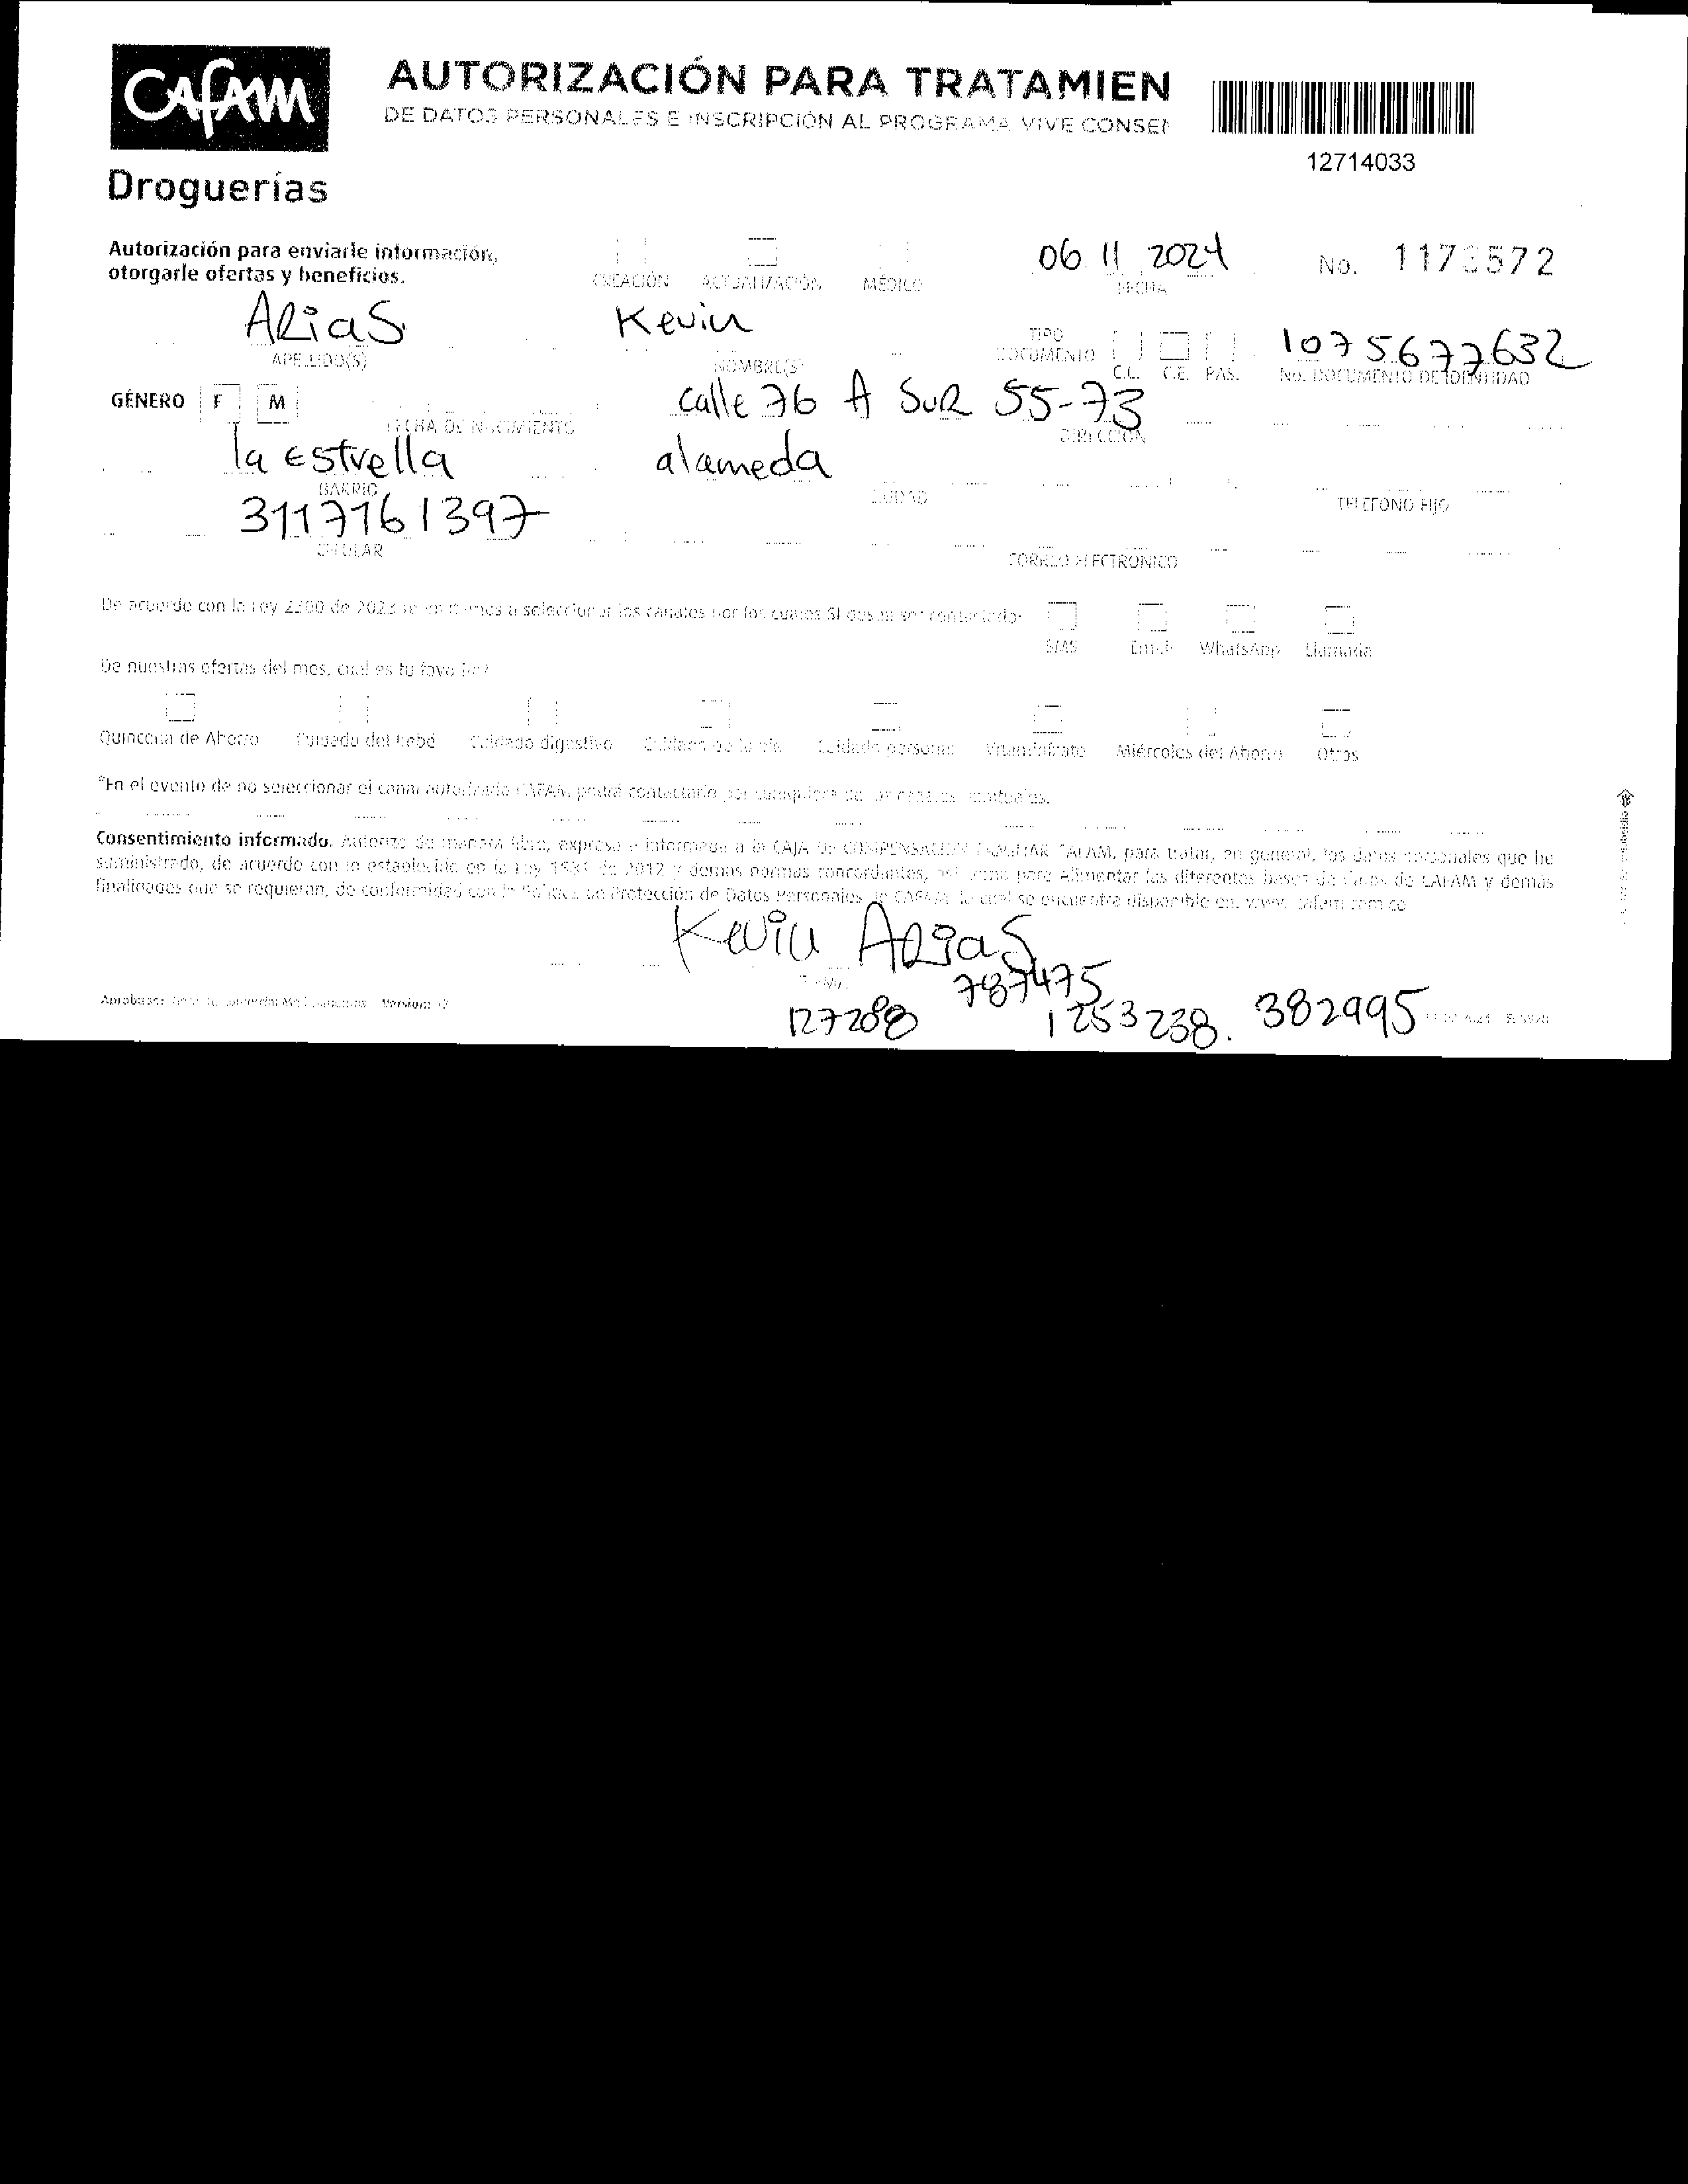 CAFAM
Droguerías
AUTORIZACIÓN PARA TRATAMIEN
DE DATOS PERSONALES E INSCRIPCIÓN AL PROGRAMA VIVE CONSEN
12714033
Autorización para enviarle información,
otorgarle ofertas y beneficios.
CREACIÓN ACTUALIZACIÓN MÉDICO
06 11 2024
FECHA
No. 1173572
Arias
APELLIDO(S)
Kevin
NOMBRE(S)
TIPO DOCUMENTO
C.C. C.E. PAS.
1075677632
No. DOCUMENTO DE IDENTIDAD
GÉNERO F M
FECHA DE NACIMIENTO
calle 76 A SUR 55-73
DIRECCIÓN
la Estrella
BARRIO
alameda
CIUDAD
TELÉFONO FIJO
3117161397
CELULAR
CORREO ELECTRÓNICO
De acuerdo con la Ley 2300 de 2023 te invitamos a seleccionar los canales por los cuales SI desea ser contactado:
SMS Email WhatsApp Llamada
De nuestras ofertas del mes, cuál es tu favorita?
Quincena de Ahorro Cuidado del bebé Cuidado digestivo Cuidado personal Miércoles del Ahorro Otros
*En el evento de no seleccionar el canal autorizado CAFAM podrá contactarlo por cualquiera de los canales habituales.
Consentimiento informado. Autorizo de manera libre, expresa e informada a la CAJA DE COMPENSACIÓN FAMILIAR CAFAM, para tratar, en general, los datos personales que he
suministrado, de acuerdo con lo establecido en la Ley 1581 de 2012 y demás normas concordantes, así como para Alimentar las diferentes bases de datos de CAFAM y demás
finalidades que se requieran, de conformidad con la Política de Protección de Datos Personales de CAFAM la cual se encuentra disponible en: www.cafam.com.co
Kevin Arias
787475
127288 1253238. 382995